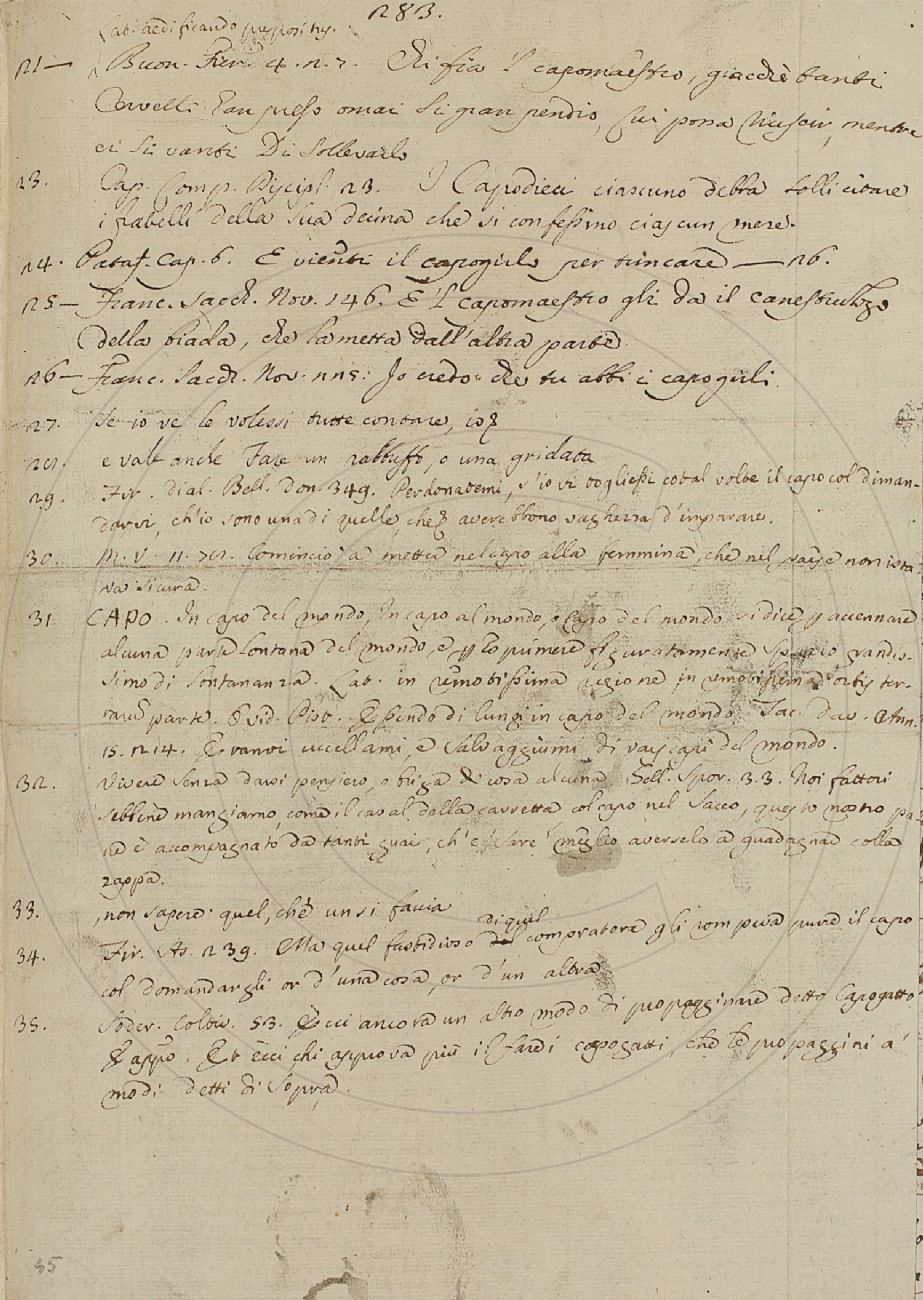 283.
Lat. aedificando praepositus.
21— Buon. Fier. 4. 2. 7. Chi fia 'l capomaestro, giacchè tanti
Cervelli han preso omai sì gran pendio, Cui possa riuscir, mentre
ei si vanti Di sollevarlo
23. Cap. Comp. Discipl. 23. I Capodieci ciascuno debba sollicitare
i fratelli della sua decina, che si confessino ciascun mese.
24. Pataf. Cap. 6. E vienti il capogirlo per tuncare — 26.
25— Franc. Sacch. Nov. 146. E 'l capomaestro gli dà il canestruzzo
della biada, che la metta dall'altra parte.
26— Franc. Sacch. Nov. 225. Io credo che tu abbi i capogirli
27. Se io ve le volessi tutte contare, io
e vale anche Fare un rabbuffo, o una gridata
29. Fir. dial. Bell. don. 349. Perdonatemi, s'io vi togliessi cotal volta il capo col diman-
darvi, ch'io sono una di quelle, che averebbono vaghezza d'imparare.
30. M. V. 11. Cominciò a metter nel capo alla femmina, che nel paese non ista-
va sicura.
31. CAPO. In capo del mondo, In capo al mondo, o Capo del mondo si dice p accennare
alcuna parte lontana del mondo, e p esprimere figuratamente spazio grandis-
simo di lontananza. Lat. in remotissima regione, in remotissima orbis ter-
rarum parte. Ovid. Pist. Essendo di lungi in capo del mondo. Tac. Dav. Ann.
15. 214. Eranvi uccellami, e salvaggiumi di varj capi del mondo.
32. Vivere senza darsi pensiero, o briga di cosa alcuna. Gell. Spor. 3.3. Noi fattori
sebbene mangiamo, come il caval della carretta col capo nel sacco, questo nostro pa-
ne è accompagnato da tanti guai, ch'e' sare' meglio averselo a guadagnar colla
zappa.
33. non sapere quel, che un si faccia
34. Fir. As. 239. Ma quel fastidioso di quel compratore gli rompeva pure il capo
col domandargli or d'una cosa, or d'un altra
35. Soder. Coltiv. 53. Ecci ancora un altro modo di propagginare detto Capogatto
E appo. Et ecci chi approva più il fare i capogatti, che le propaggini a'
modi detti di sopra.
35